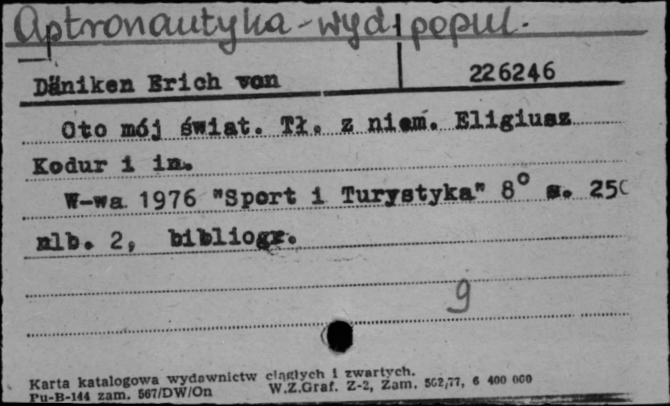 Aptronautyka - wyd. popul.
Däniken Erich von 226246
Oto mój świat. Tł. z niem. Eligiusz
Kodur i in.
W-wa 1976 "Sport i Turystyka" 8° s. 250
nlb. 2, bibliogr.
9
Karta katalogowa wydawnictw ciągłych i zwartych.
Pu-B-144 zam. 567/DW/On W.Z.Graf. Z-2, Zam. 562/77, 6 400 000